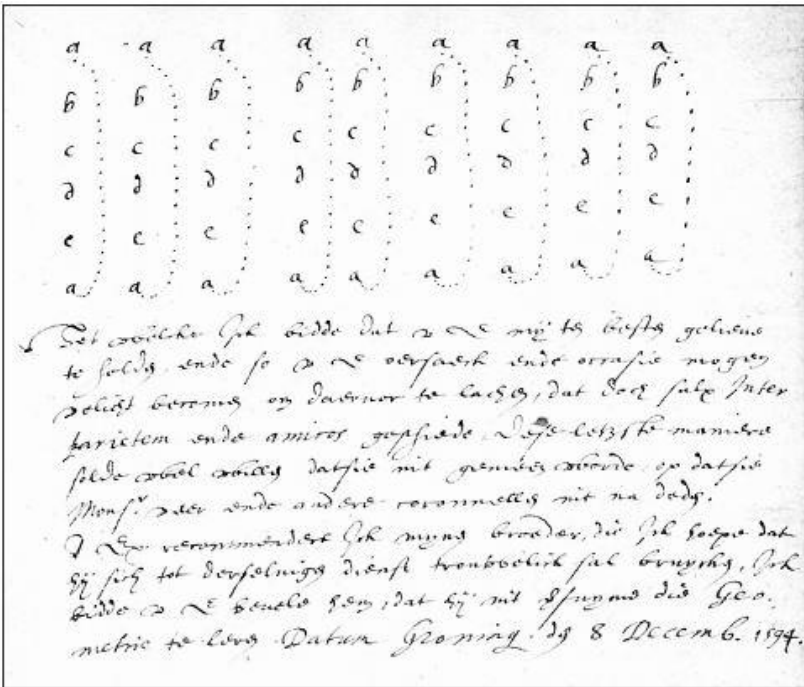 a a a a a a a a a
b b b b b b b b b
c c c c c c c c c
d d d d d d d d d
e e e e e e e e e
a a a a a a a a a
Het welche Ick bidde dat my ten besten gelieve
te holden ende so oersaeck ende occasie mogen
velicht becomen om daervor te lachen, dat doch sulx Inter
parietem ende amicos geschiede. Dese letzste maniere
solde wel willen datsie nit gemeen worde, op datsie
Monsr. veer ende andere coronnellen nit na deden.
recommendere Ick mynen broeder, die Ick hoepe dat
hy sich tot derselvigen dienst trouwelick sal bruycken, Ick
bidde bevele hem, dat hy nit versuyme die Geo-
metrie te leren. Datum Groning. den 8 Decemb. 1594.